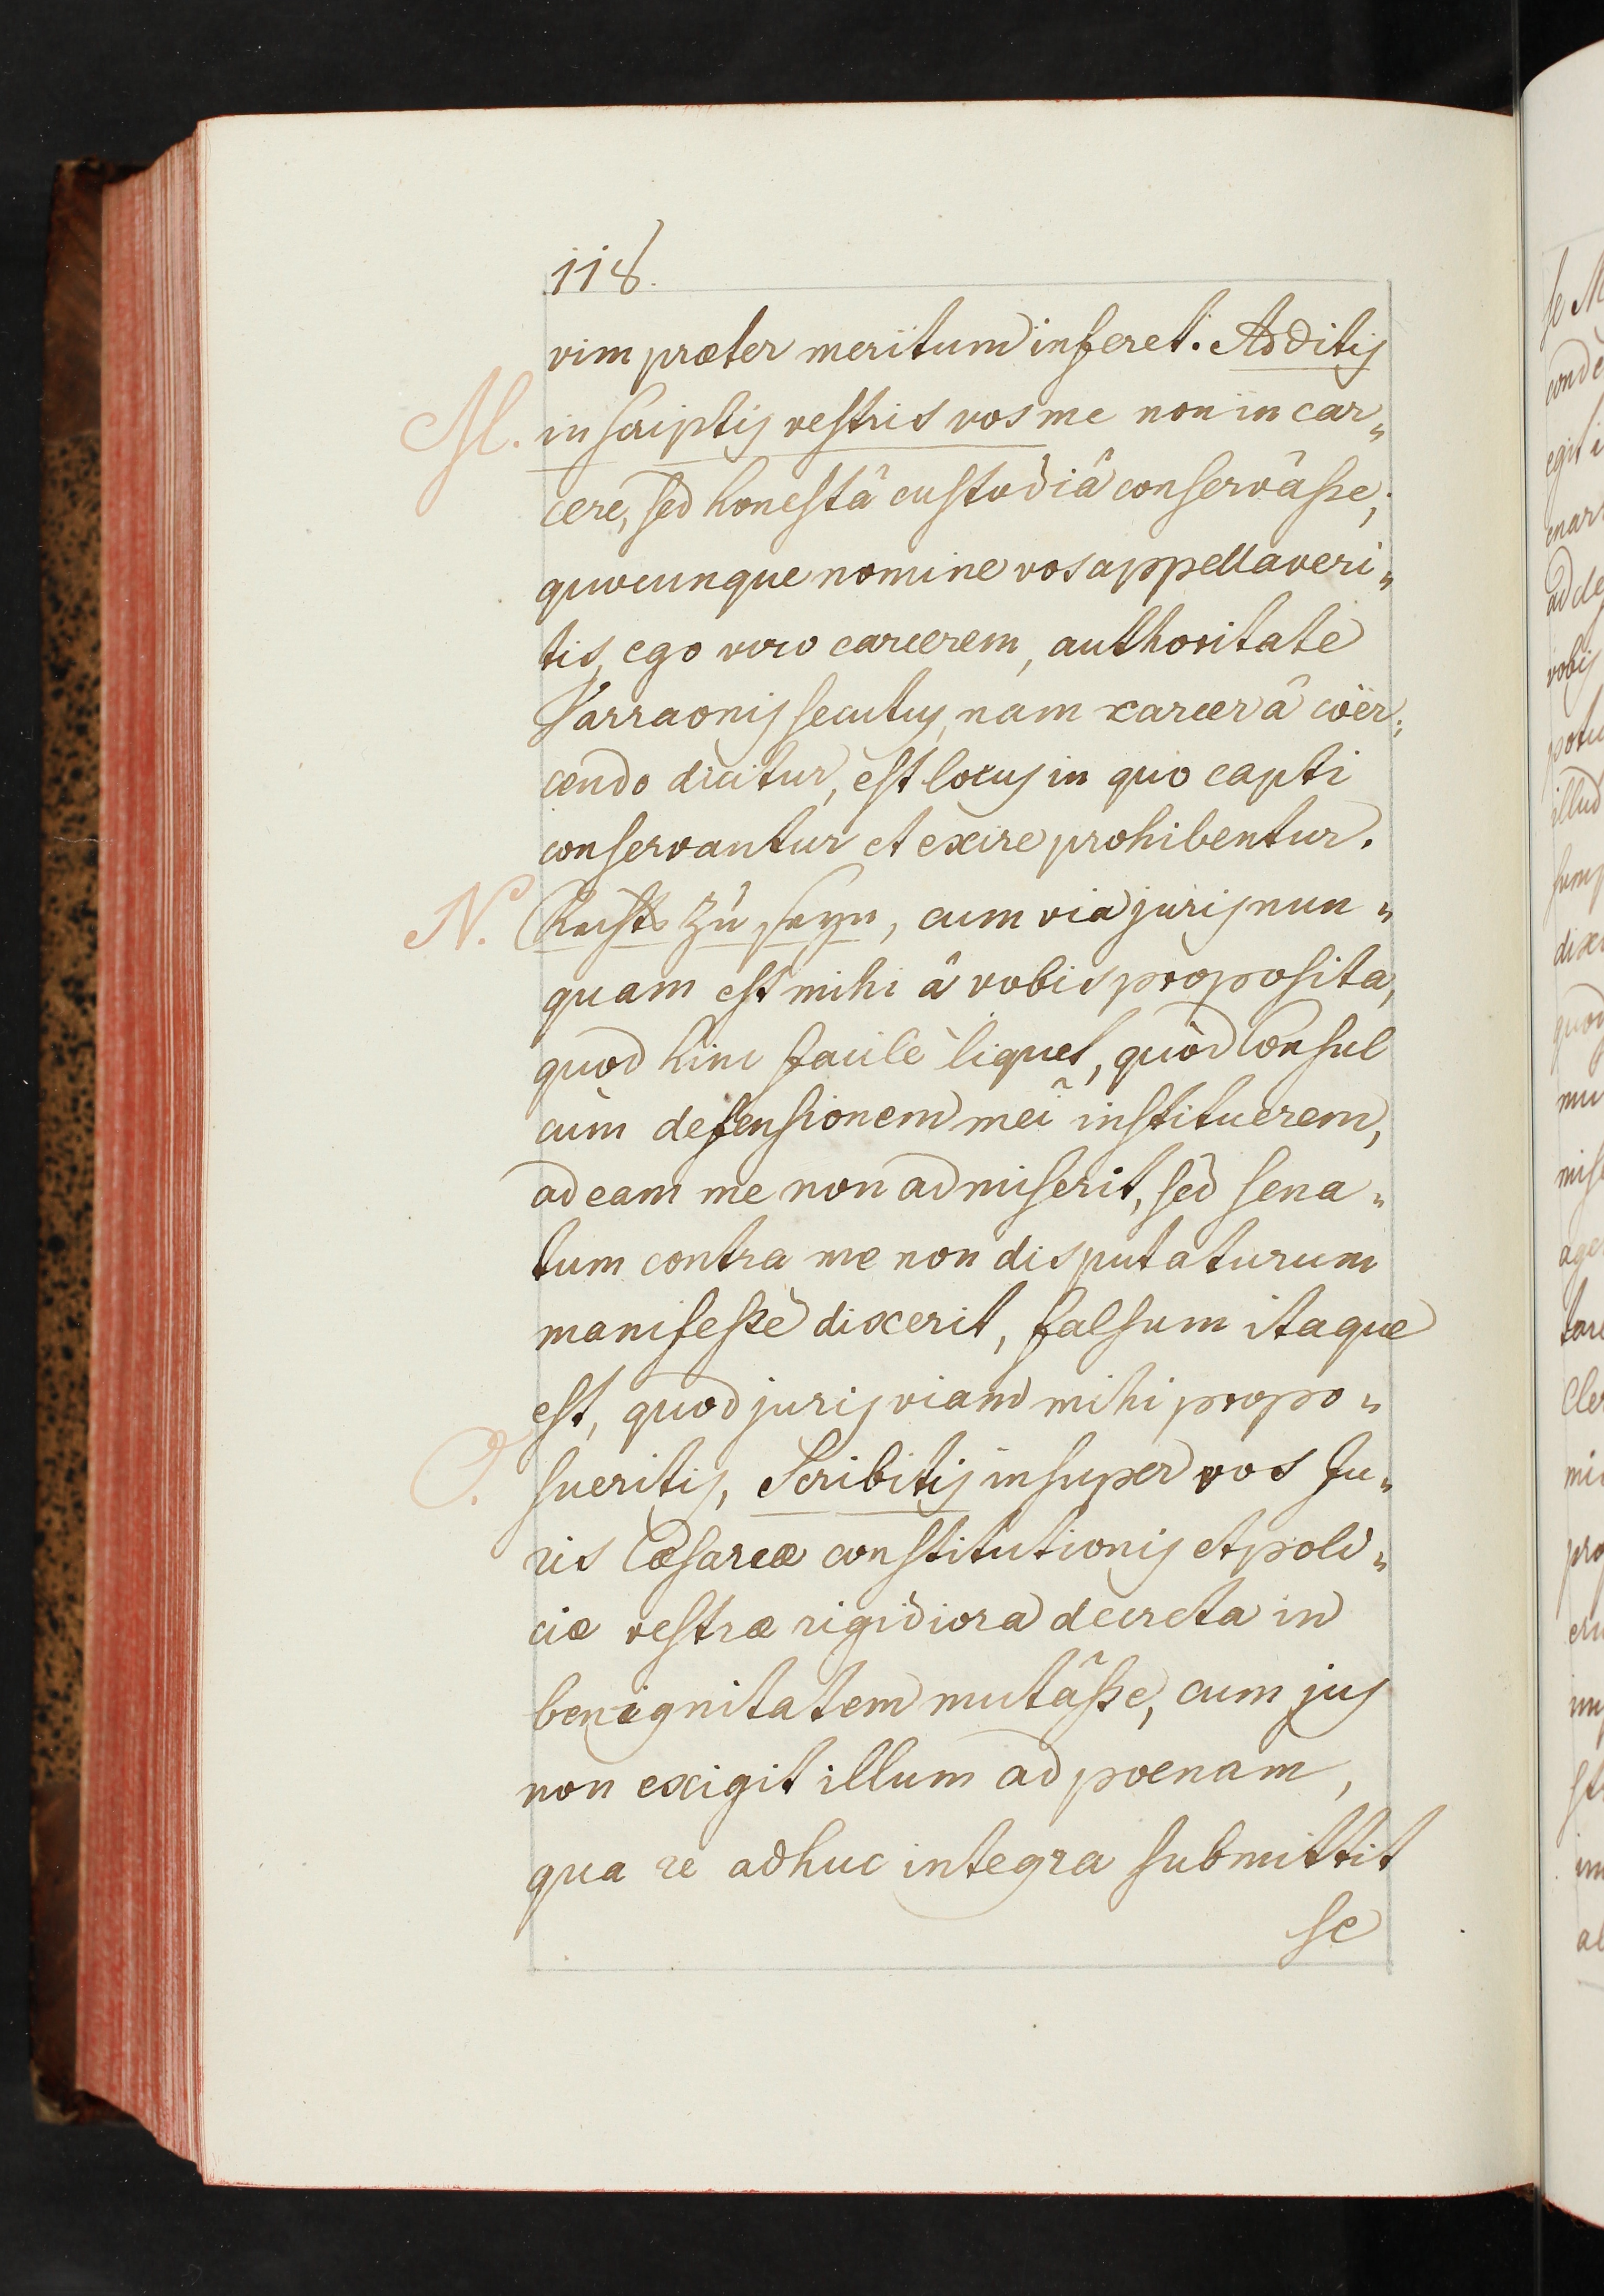 118.
vim præter meritum inferet. Additis
M. in scriptis vestris vos me non in car„
cere, sed honestâ custodiâ conservâsse,
quocunque nomine vos appellaveri„
tis, ego vero carcerem, authoritate
Varraonis secutus, nam carcer â coër„
cendo dicitur, est locus in quo capti
conservantur et exire prohibentur.
N. Rechts zu seyn, cum via juris nun„
quam est mihi â vobis proposita,
quod hinc facilè liquet, quòd Consul
cùm defensionem mei instituerem,
ad eam me non admiserit, sed sena„
tum contra me non disputaturum
manifeste dixerit, falsum itaque
est, quod juris viam mihi propo„
O. sueritis, Scribitis insuper vos Ju„
ris Cæsareæ constitutionis et poli„
ciæ vestræ rigidiora decreta in
benignitatem mutâsse, cum jus
non exigit illum ad poenam,
qua re adhuc integra submittit
se